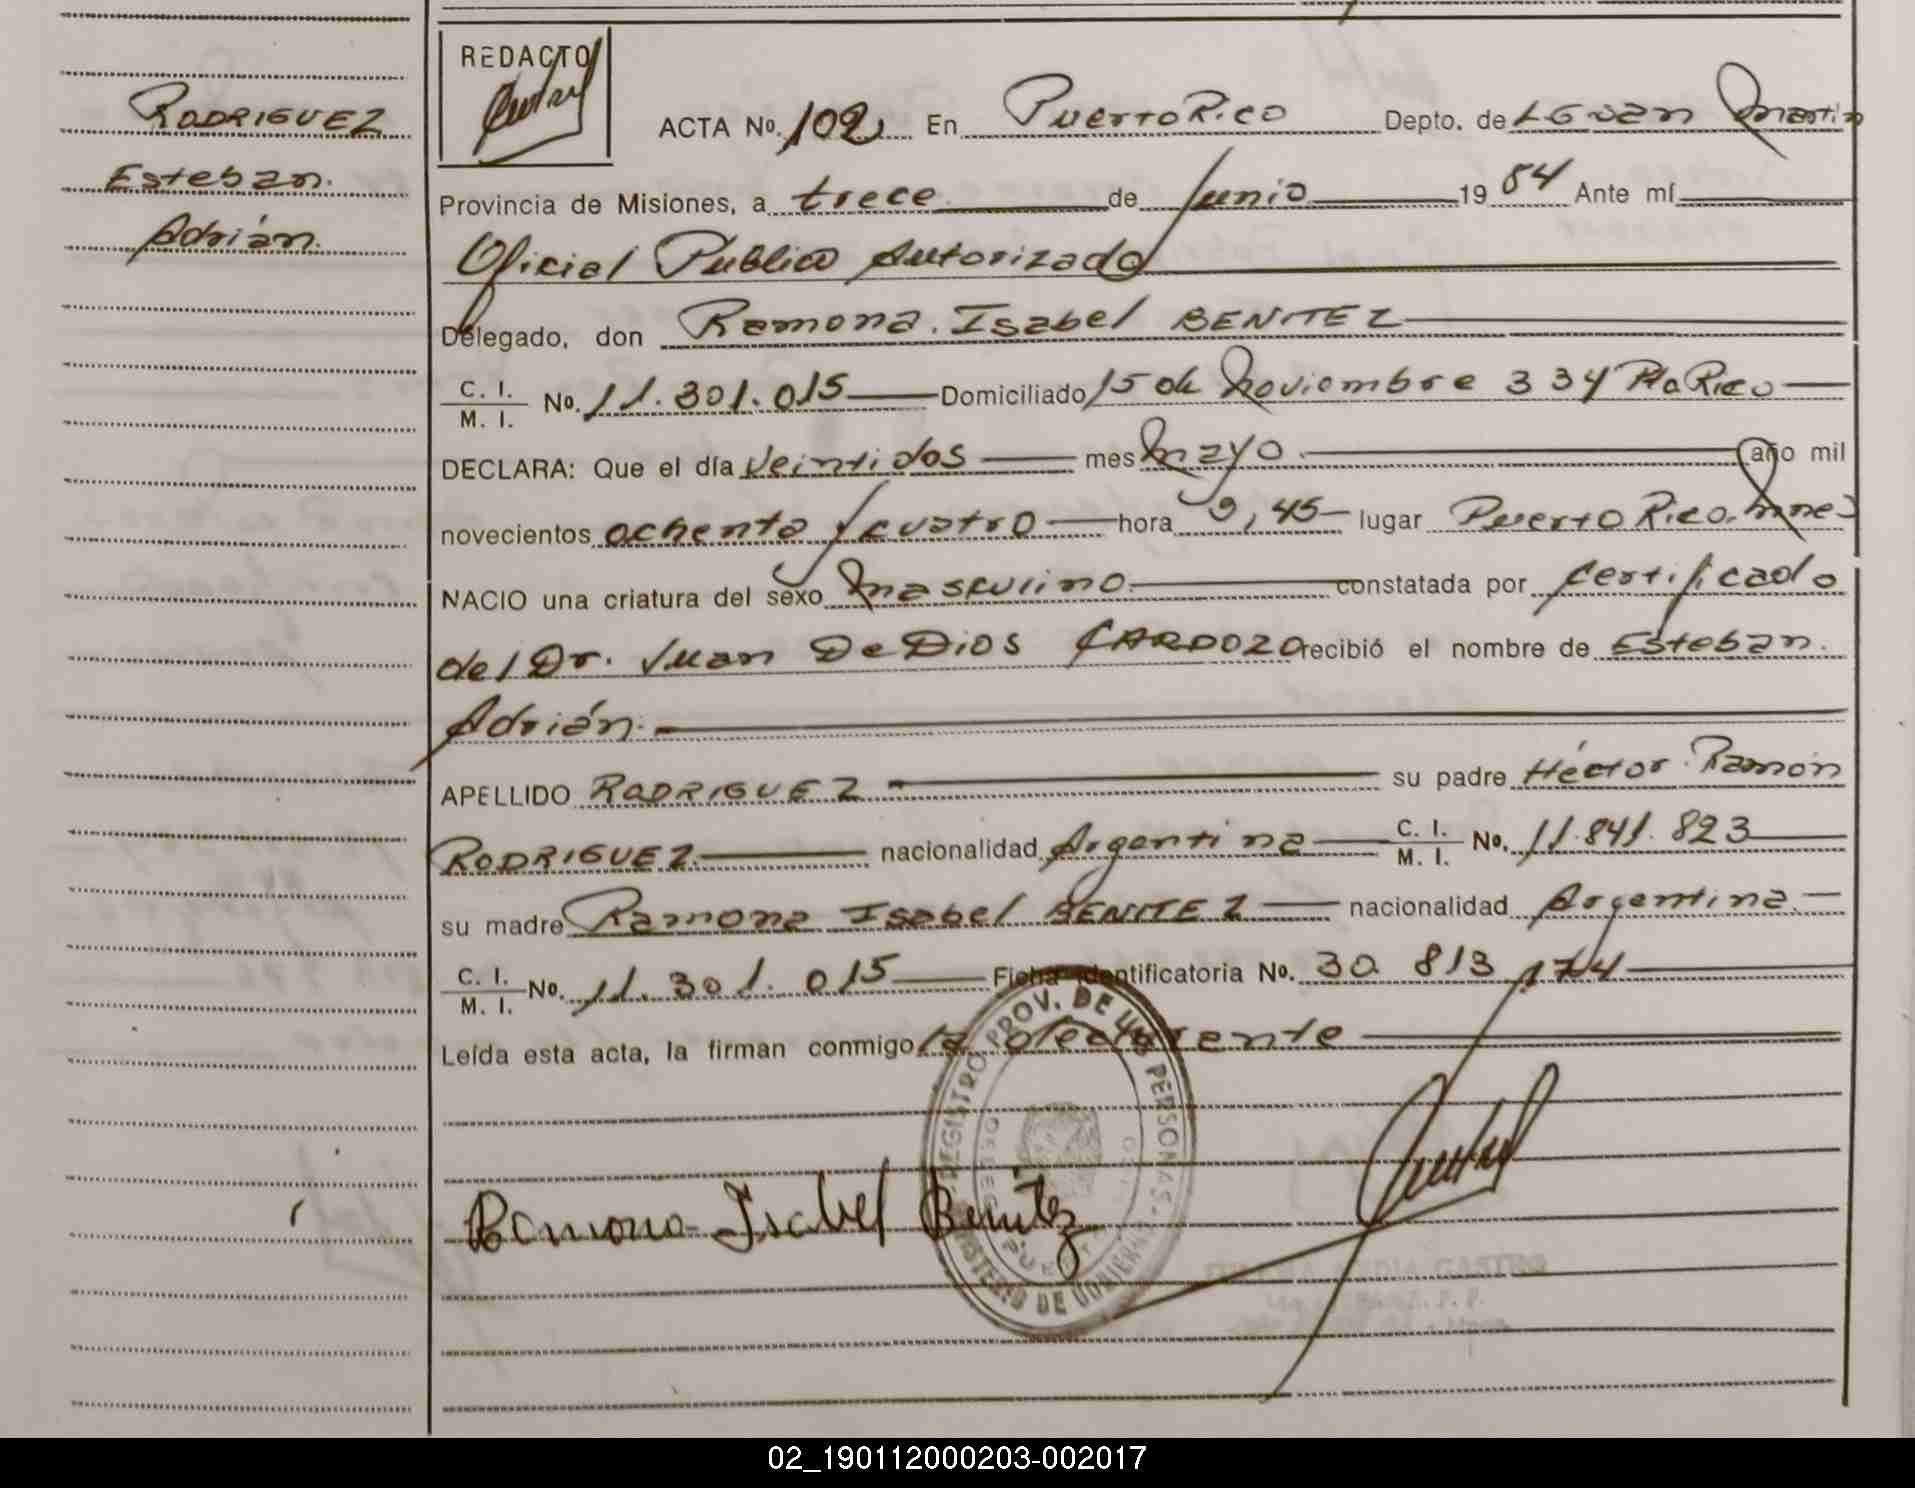 RODRIGUEZ
Esteban.
Adrián.
REDACTO
ACTA No. 102 En Puerto Rico Depto. de LG San Martin
Provincia de Misiones, a trece de Junio 1984 Ante mí
Oficial Publico Autorizado
Delegado, don Ramona Isabel BENITEZ
C. I. / M. I. No. 11.301.015 Domiciliado 15 de Noviembre 334 Pto Rico
DECLARA: Que el día Veintidos mes Mayo año mil
novecientos ochenta y cuatro hora 9,45 lugar Puerto Rico. Mnes
NACIO una criatura del sexo Masculino constatada por Certificado
del Dr. Juan De Dios CARDOZO recibió el nombre de Esteban.
Adrián.
APELLIDO RODRIGUEZ su padre Héctor Ramón
RODRIGUEZ. nacionalidad Argentina C. I. / M. I. No. 11.841.823
su madre Ramona Isabel BENITEZ nacionalidad Argentina.
C. I. / M. I. No. 11.301.015 Ficha Identificatoria No. 30 813 174
Leída esta acta, la firman conmigo la declarente
REGISTRO PROV. DE LAS PERSONAS
MINISTERIO DE GOBIERNO
Ramona Isabel Benítez
02_190112000203-002017